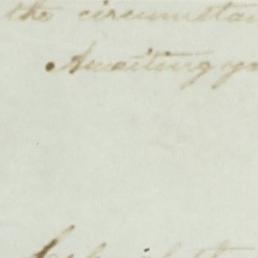 the circumstan
Awaiting yo